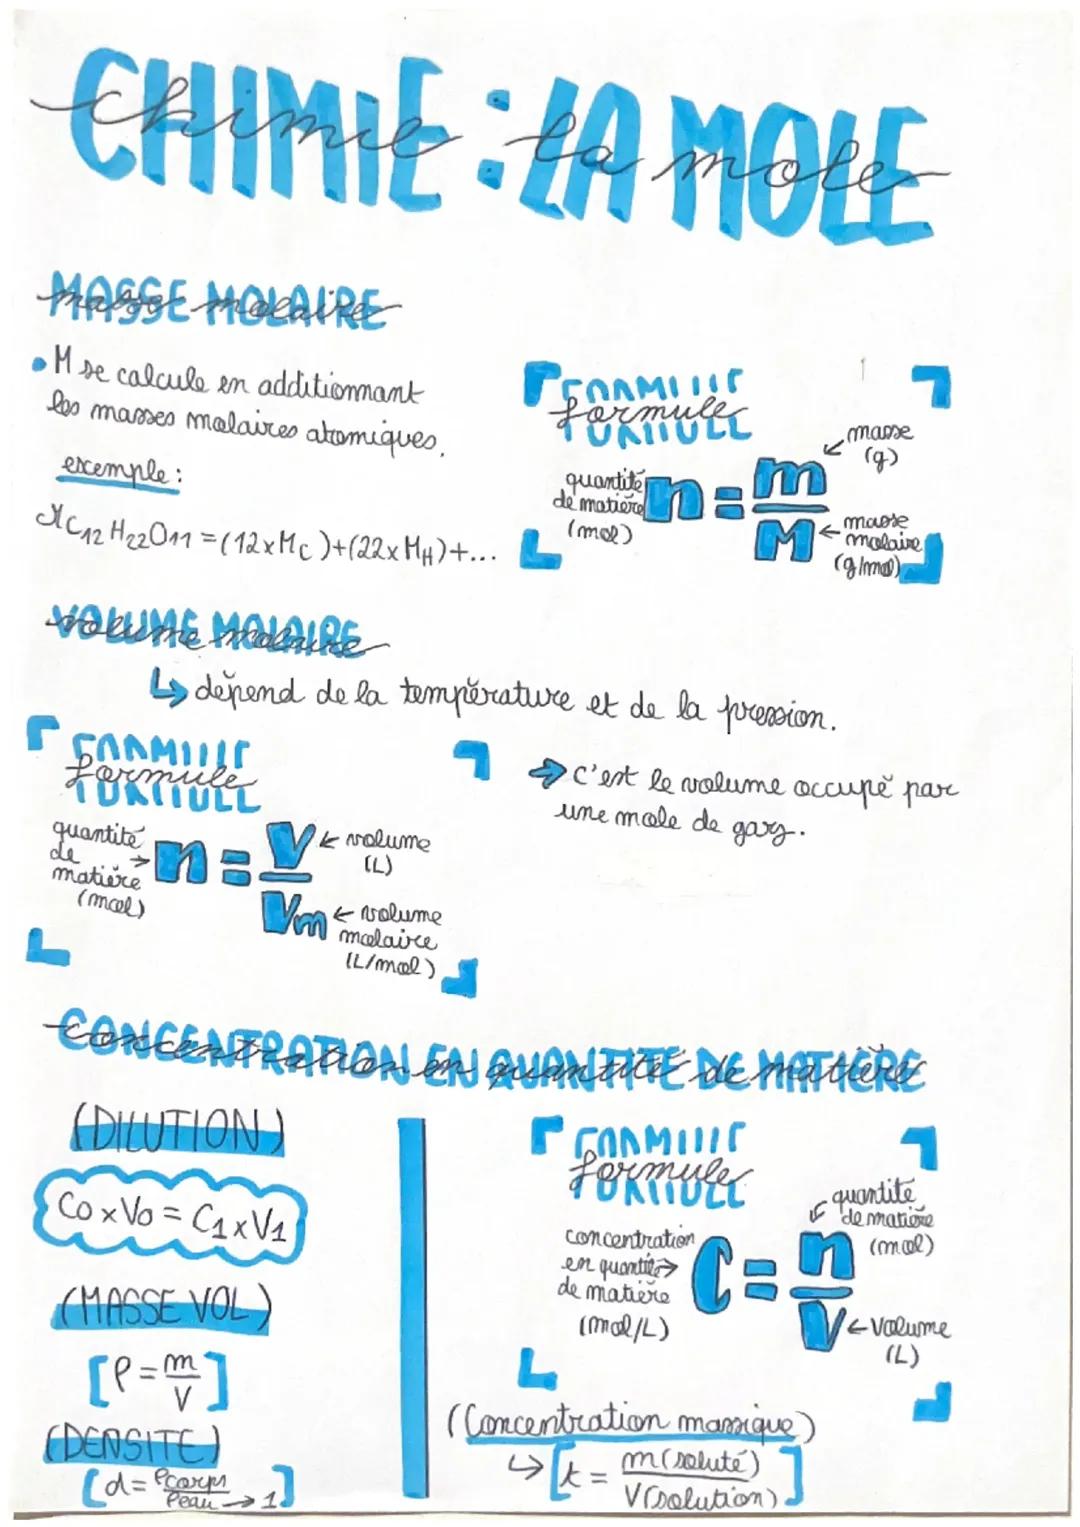 CHIMIE : LA MOLE
chimie la mole
MASSE MOLAIRE
masse molaire
• M se calcule en additionnant
les masses molaires atomiques.
exemple :
MC12H22O11 = (12xMC)+(22xMH)+...
FORMULE
formule
quantité de matière (mol)
n = m/M
masse (g)
masse molaire (g/mol)
VOLUME MOLAIRE
volume molaire
↳ dépend de la température et de la pression.
FORMULE
formule
quantité de matière (mol)
n = V/Vm
← volume (L)
← volume molaire (L/mol)
→ C'est le volume occupé par
une mole de gaz.
CONCENTRATION EN QUANTITÉ DE MATIÈRE
concentration en quantité de matière
(DILUTION)
C0 x V0 = C1 x V1
(MASSE VOL)
[ρ = m/V]
(DENSITE)
[d = ρcorps/ρeau → 1]
FORMULE
formule
concentration en quantité de matière (mol/L)
C = n/V
quantité de matière (mol)
← Volume (L)
(Concentration massique)
↳ [t = m(soluté)/V(solution)]